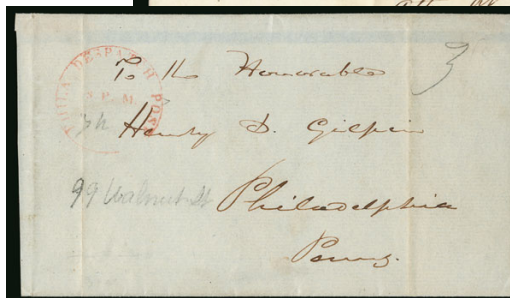 PHILA DESPATCH POST
P.M.
To the Honorable
3
Henry D. Gilpin
99 Walnut St
Philadelphia
Penns.